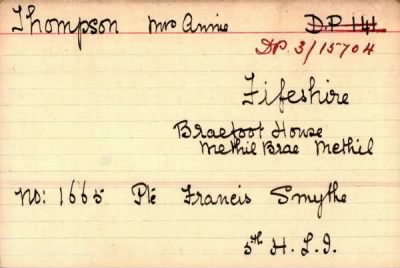 Thompson Mrs Annie D.P. 141
D.P. 3/15704
Fifeshire
Braefoot House
Methil Brae Methil
No: 1665 Pte Francis Smythe
5th H. L. I.